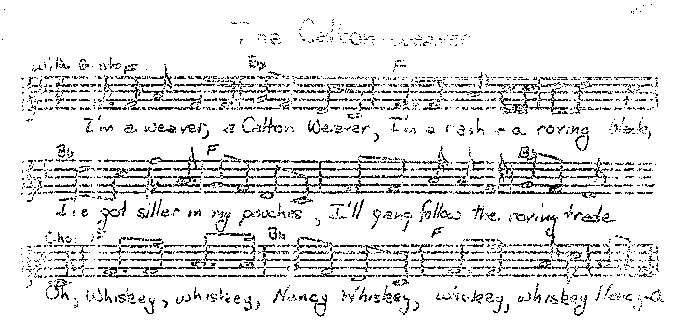 The Calton Weaver
Bb F
I'm a weaver, a Calton Weaver, I'm a rash + a roving blade,
Bb F Bb
I've got siller in my pouches, I'll gang follow the roving trade
Cho. F Bb F
Oh, Whiskey, whiskey, Nancy Whiskey, whiskey, whiskey Nancy-O